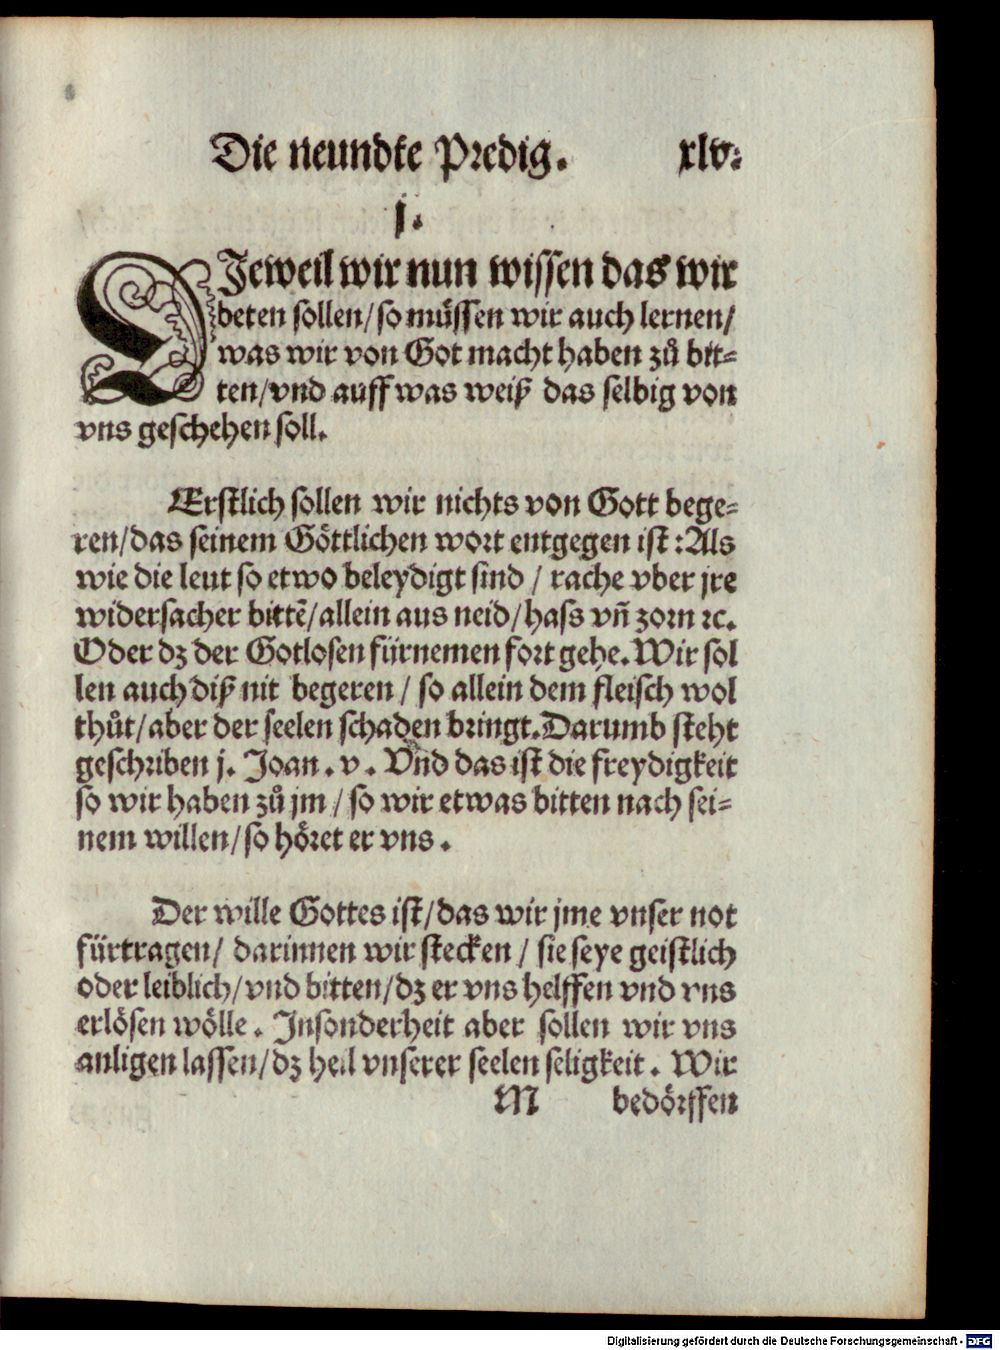 Die neundte Predig. xlv.
j.
DJeweil wir nun wissen das wir
beten sollen/so muͤssen wir auch lernen/
was wir von Got macht haben zů bit-
ten/vnd auff was weiß das selbig von
vns geschehen soll.
Erstlich sollen wir nichts von Gott bege-
ren/das seinem Göttlichen wort entgegen ist:Als
wie die leut so etwo beleydigt sind / rache vber jre
widersacher bittē/allein aus neid/hass vñ zorn ꝛc.
Oder dz der Gotlosen fürnemen fort gehe.Wir sol
len auch diß nit begeren / so allein dem fleisch wol
thůt/aber der seelen schaden bringt.Darumb steht
geschriben j. Joan. v. Vnd das ist die freydigkeit
so wir haben zů jm / so wir etwas bitten nach sei-
nem willen/so höret er vns.
Der wille Gottes ist/das wir jme vnser not
fürtragen/ darinnen wir stecken / sie seye geistlich
oder leiblich/vnd bitten/dz er vns helffen vnd vns
erlösen wölle. Insonderheit aber sollen wir vns
anligen lassen/dz heil vnserer seelen seligkeit. Wir
M bedörffen
Digitalisierung gefördert durch die Deutsche Forschungsgemeinschaft - DFG